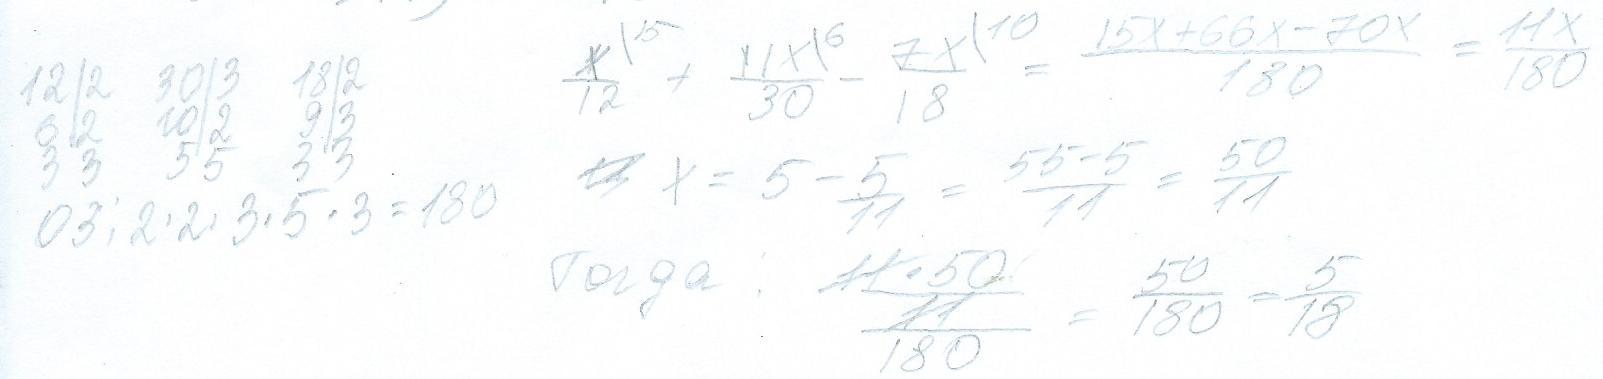 12|2 30|3 18|2
6|2 10|2 9|3
3 3 5 5 3 3
ОЗ: 2·2·3·5·3=180
x\15/12 + 11x\6/30 - 7x\10/18 = 15x+66x-70x/180 = 11x/180
x = 5 - 5/11 = 55-5/11 = 50/11
Тогда: 11·50/11/180 = 50/180 = 5/18